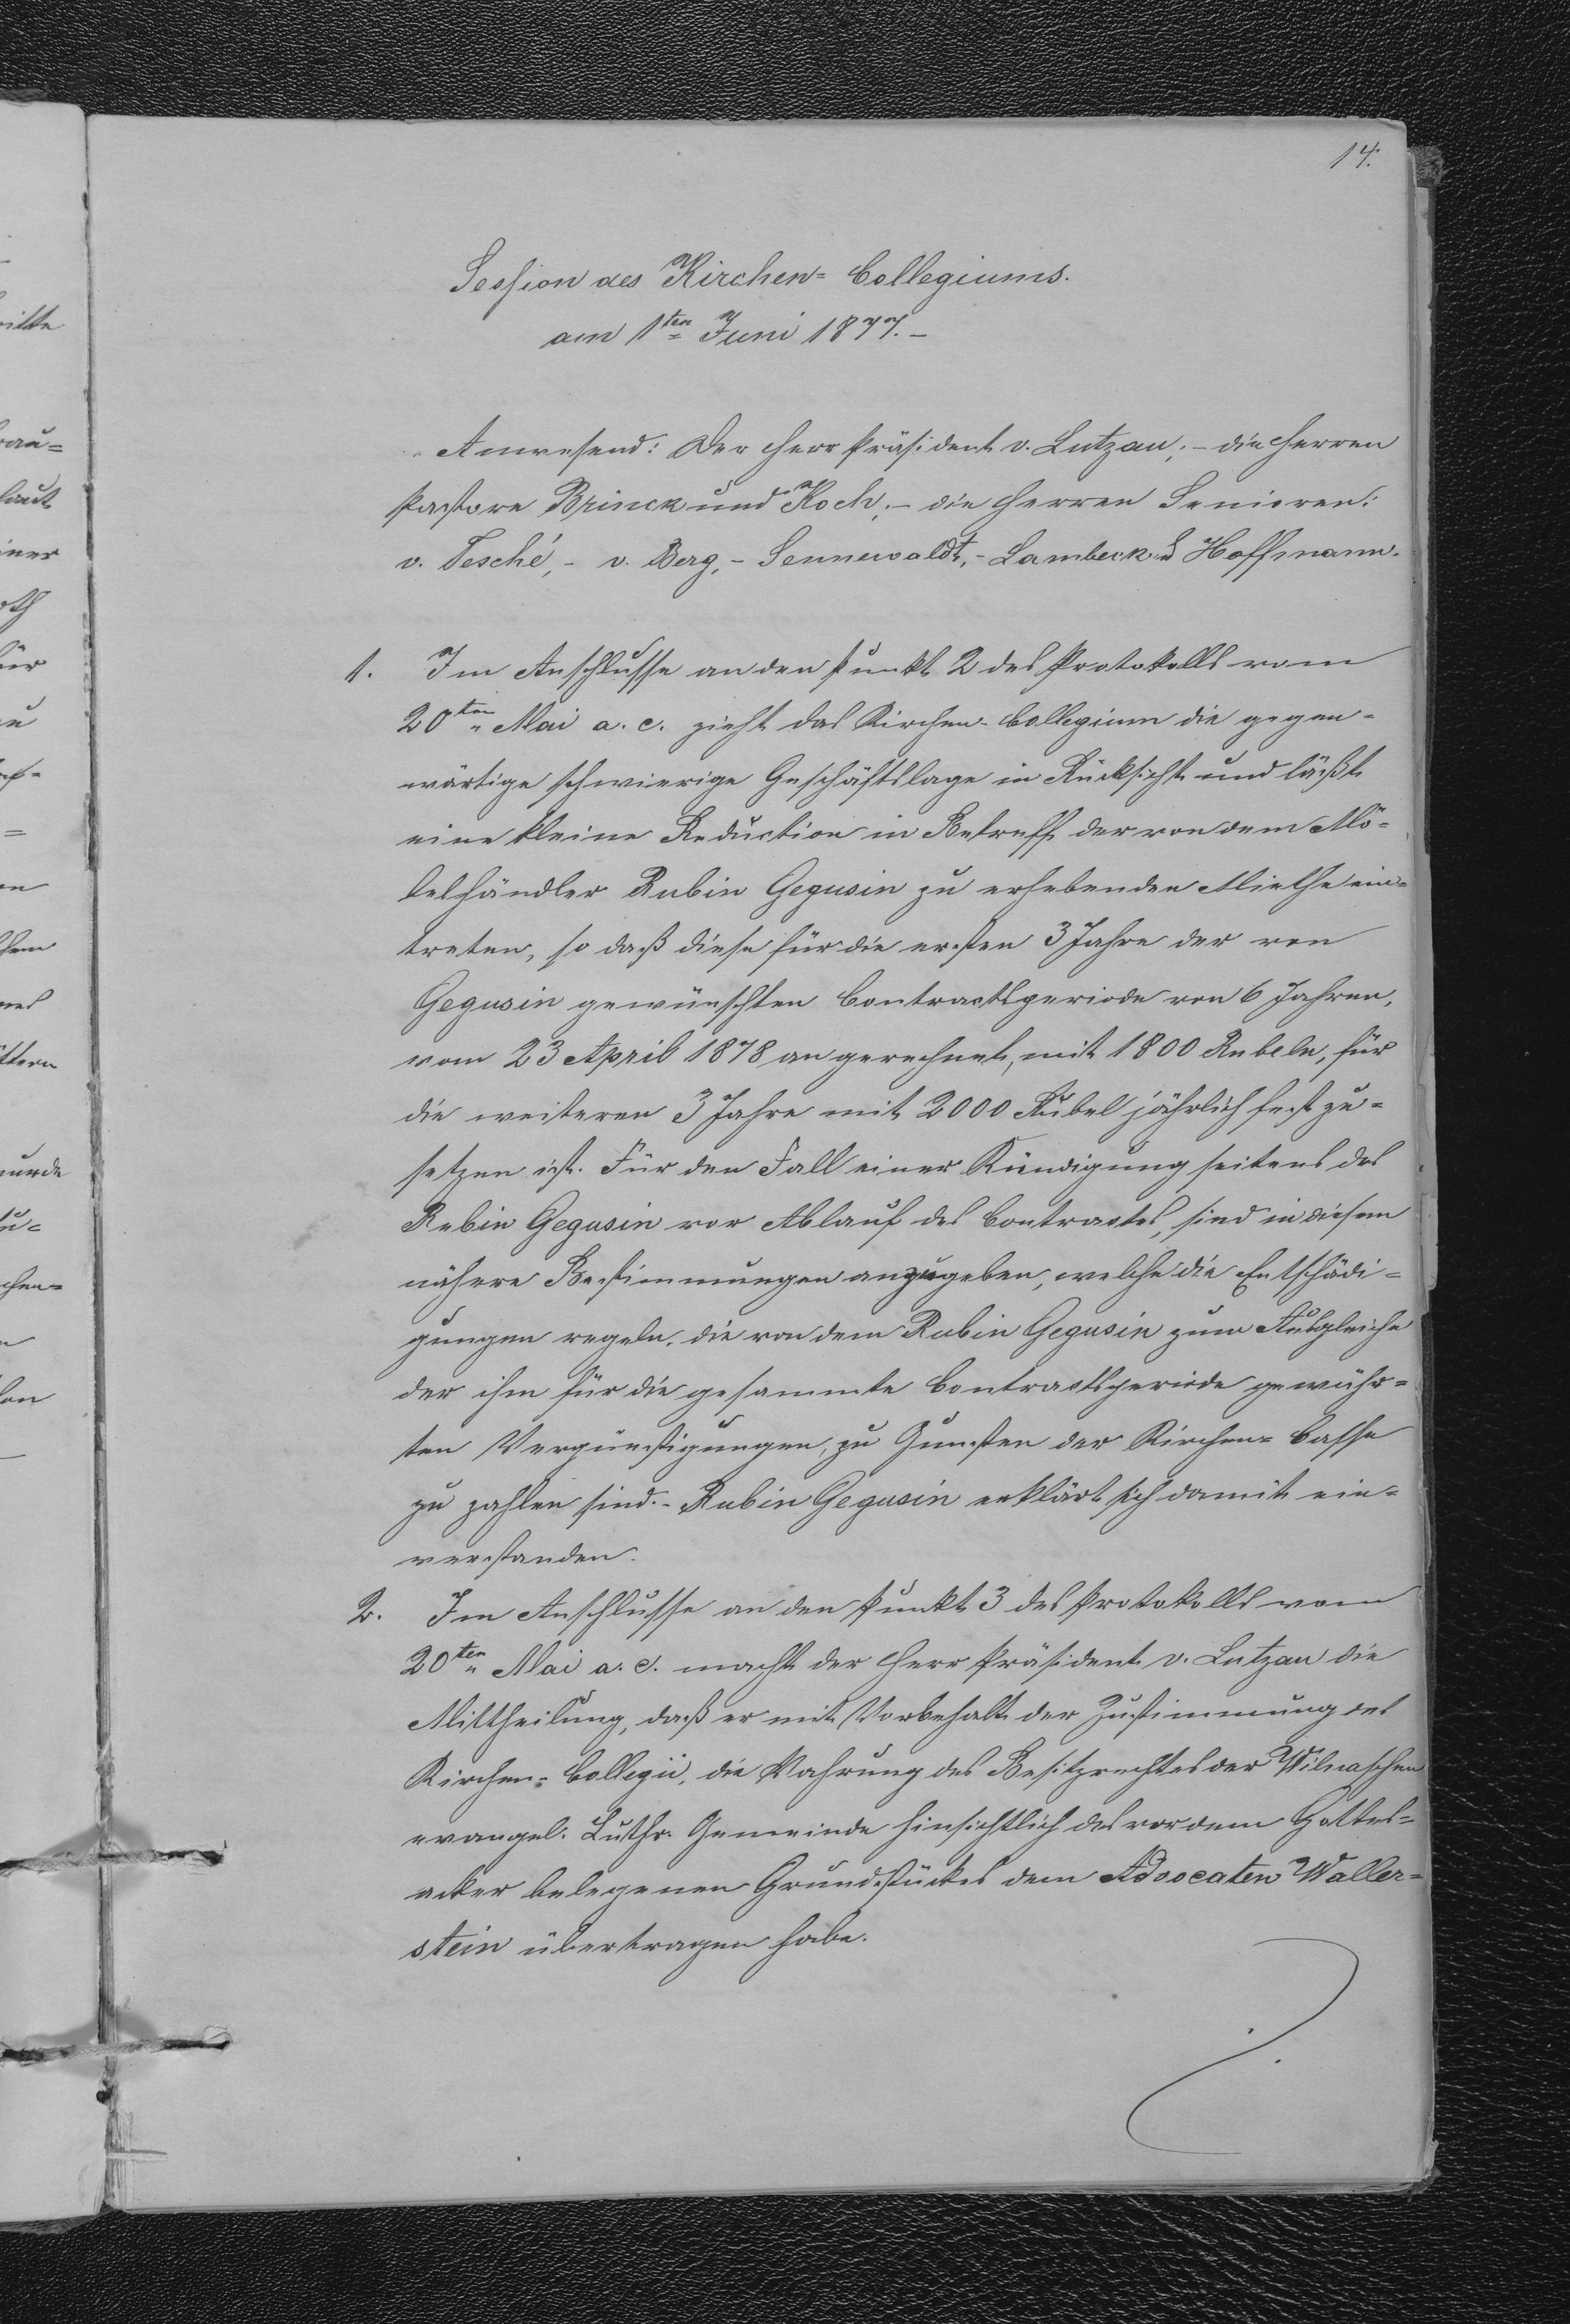 14.
Session des Kirchen= Collegiums.
am 1ten Juni 1877.–
Anwesend: Der Herr Präsident v. Lutzau; – die Herren
Pastore Brinck und Koch; – die Herren Senioren:
v. Tesché, – v. Berg, – Sennewaldt, – Lambeck & Hoffmann.
1. Im Anschlusse an den Punkt 2 des Protokolls vom
20ten Mai a. c. zieht das Kirchen-Collegium die gegen=
wärtige schwierige Geschäftslage in Rücksicht und läßt
eine kleine Reduction in Betreff der von dem Mö=
belhändler Rubin Gegusin zu erhebenden Miethe ein=
treten, so daß diese für die ersten 3 Jahre der von
Gegusin gewünschten Contractsperiode von 6 Jahren,
vom 23 April 1878 an gerechnet, mit 1800 Rubeln, für
die weiteren 3 Jahre mit 2000 Rubel jährlich fest zu=
setzen ist. Für den Fall einer Kündigung seitens des
Rubin Gegusin vor Ablauf des Contractes, sind in diesem
nähere Bestimmungen anzugeben, welche die Entschädi=
gungen regeln, die von dem Rubin Gegusin zum Ausgleiche
der ihm für die gesammte Contractsperiode gewähr=
ten Vergünstigungen, zu Gunsten der Kirchen= Casse
zu zahlen sind. – Rubin Gegusin erklärt sich damit ein=
verstanden.
2. Im Anschlusse an den Punkt 3 des Protokolls vom
20ten Mai a. c. macht der Herr Präsident v. Lutzau die
Mittheilung, daß er mit Vorbehalt der Zustimmung des
Kirchen= Collegii, die Wahrung des Besitzrechtes der Wilnaschen
evangel. Luthr. Gemeinde hinsichtlich des vor dem Gottes=
acker belegenen Grundstückes dem Advocaten Waller=
stein übertragen habe.